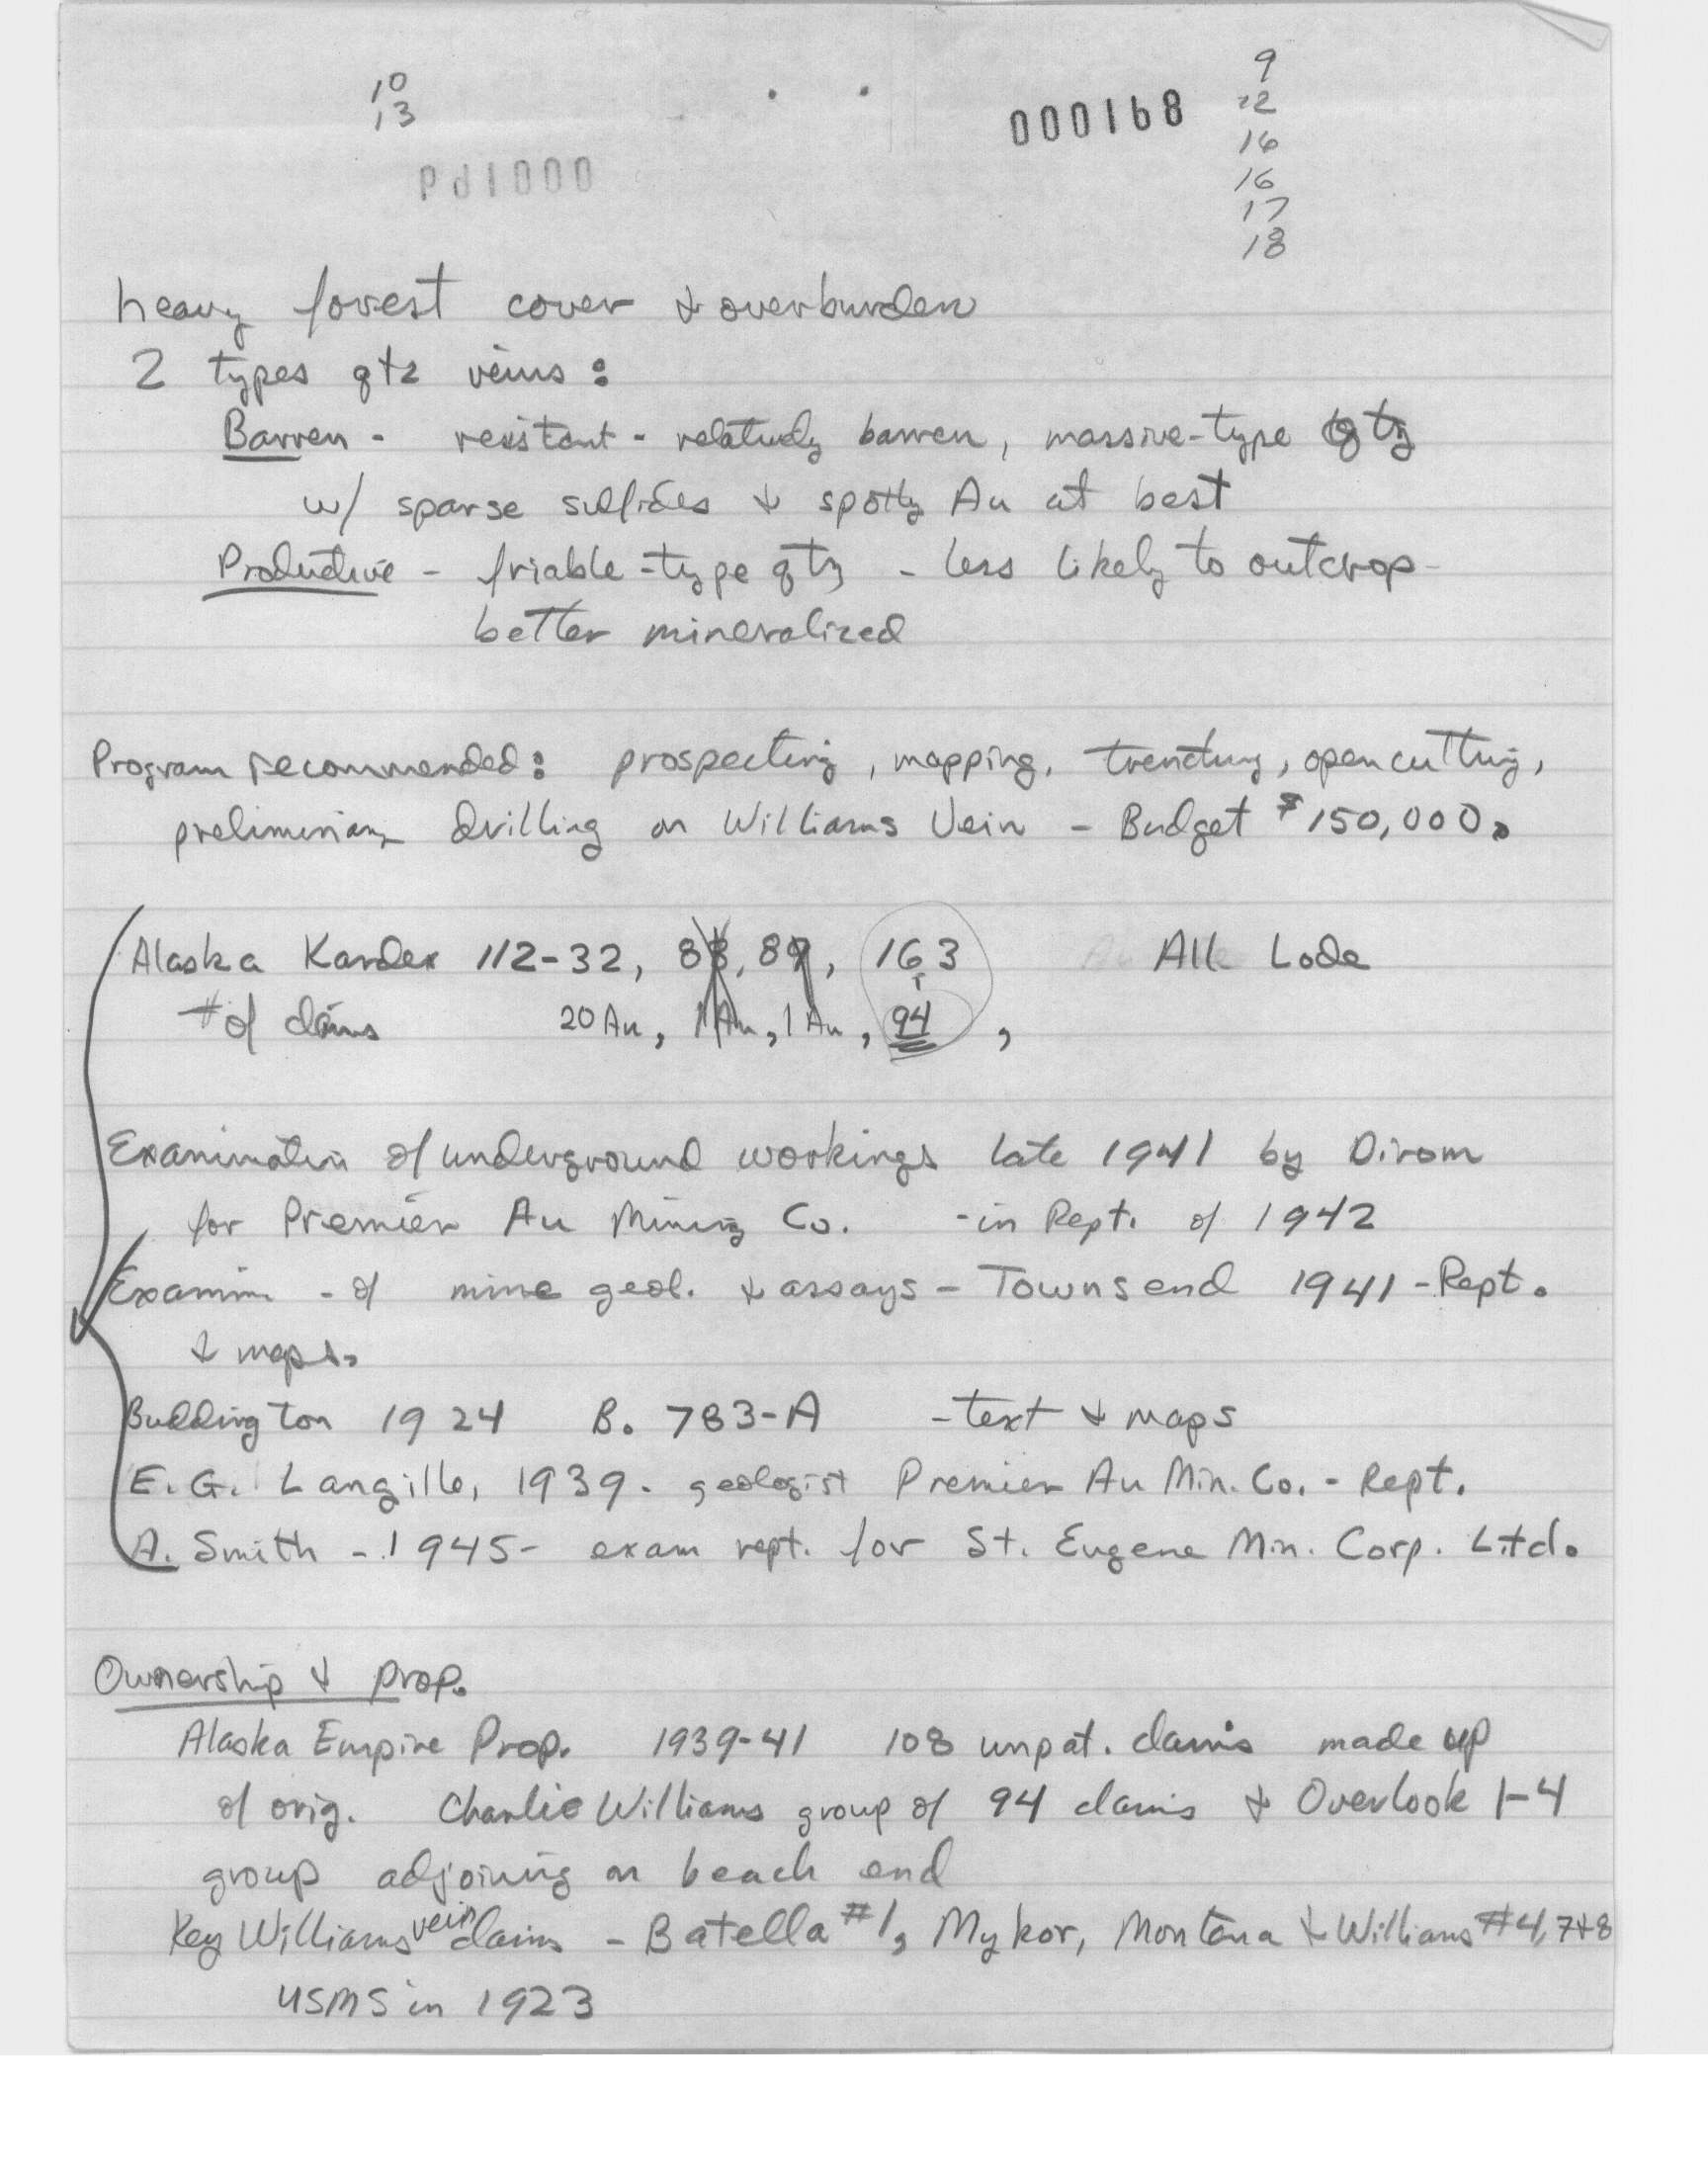 10
13
000168
9
12
16
16
17
18
heavy forest cover & overburden
2 types qtz veins :
Barren - resistant - relatively barren, massive-type qtz
w/ sparse sulfides & spotty Au at best
Productive - friable-type qtz - less likely to outcrop -
better mineralized
Program recommended: prospecting, mapping, trenching, opencutting,
preliminary drilling on Williams Vein - Budget $150,000.
Alaska Kardex 112-32, 88, 89, 163 All Lode
# of claims 20 Au, 1 Au, 1 Au, 94,
Examination of underground workings late 1941 by Dirom
for Premier Au Mining Co. - in Rept. of 1942
Examin - of mine geol. & assays - Townsend 1941 - Rept.
& maps.
Buddington 1924 B. 783-A - text & maps
E. G. Langille, 1939. geologist Premier Au Min. Co. - Rept.
A. Smith - 1945 - exam rept. for St. Eugene Min. Corp. Ltd.
Ownership & prop.
Alaska Empire Prop. 1939-41 108 unpat. claims made up
of orig. Charlie Williams group of 94 claims & Overlook 1-4
group adjoining on beach end
Key Williams vein claims - Batella #1, Mykor, Montana & Williams #4, 7&8
USMS in 1923